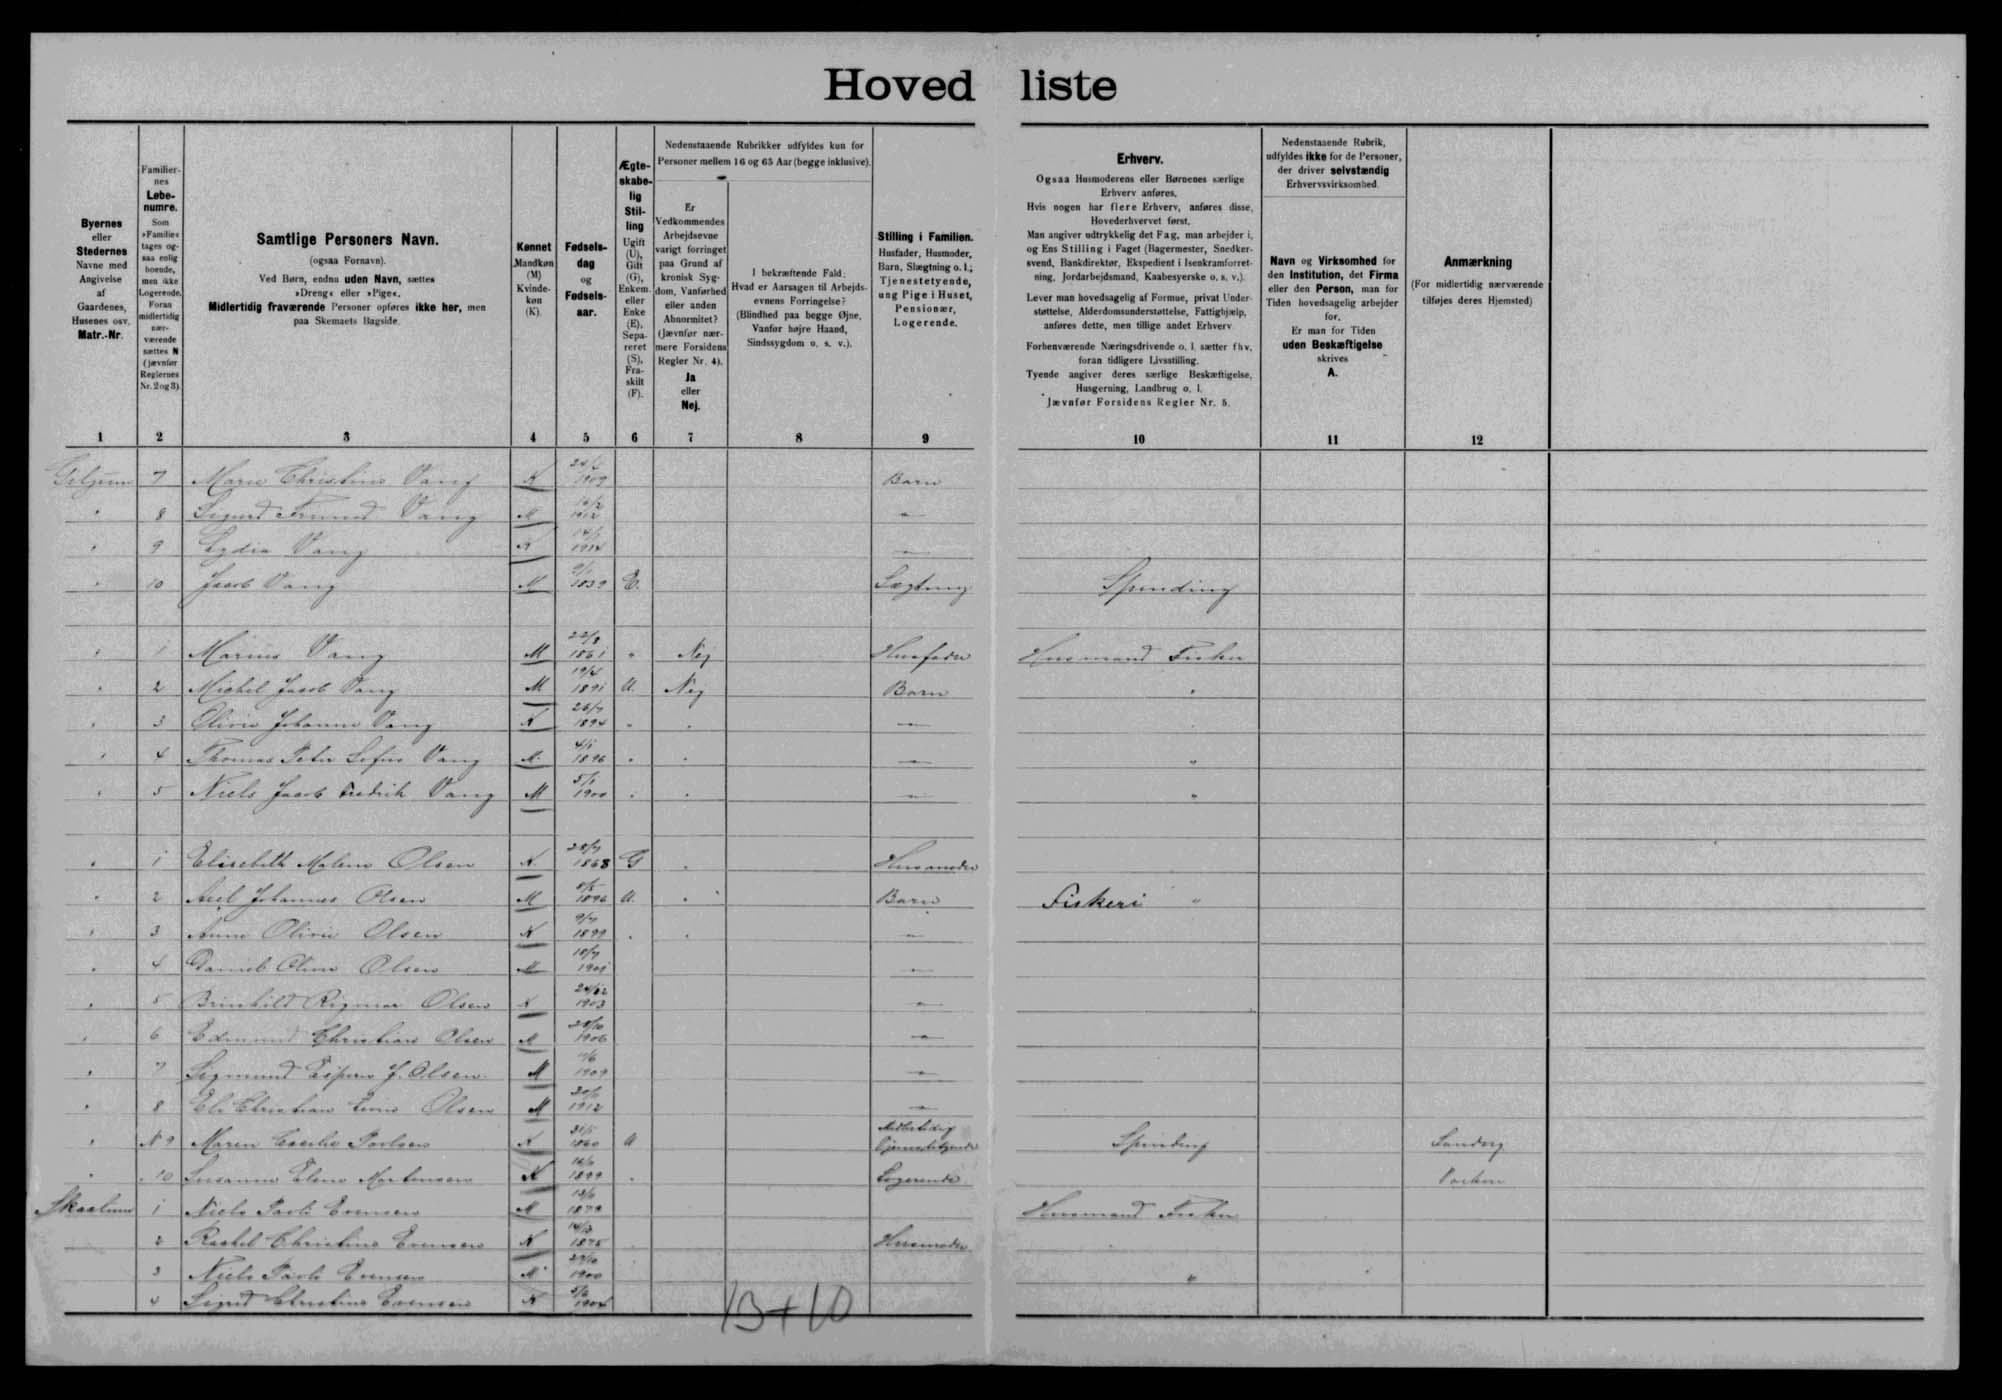 Hovedliste
Byernes
eller
Stedernes
Navne med
Angivelse
af
Gaardenes,
Husenes osv.
Matr.-Nr.
Familier-
nes
Løbe-
numre.
Som
»Familie«
tages og-
saa enlig
boende,
men ikke
Logerende.
Foran
midlertidig
nær-
værende
sættes N
(jævnfør
Reglernes
Nr. 2 og 3)
Samtlige Personers Navn.
(ogsaa Fornavn).
Ved Børn, endnu uden Navn, sættes
»Dreng« eller »Pige«.
Midlertidig fraværende Personer opføres ikke her, men
paa Skemaets Bagside.
Kønnet
Mandkøn
(M)
Kvinde-
køn
(K).
Fødsels-
dag
og
Fødsels-
aar.
Ægte-
skabe-
lig
Stil-
ling
Ugift
(U),
Gift
(G),
Enkem.
eller
Enke
(E),
Sepa-
reret
(S),
Fra-
skilt
(F).
Nedenstaaende Rubrikker udfyldes kun for
Personer mellem 16 og 65 Aar (begge inklusive).
Er
Vedkommendes
Arbejdsevne
varigt forringet
paa Grund af
kronisk Syg-
dom, Vanførhed
eller anden
Abnormitet?
(Jævnfør nær-
mere Forsidens
Regler Nr. 4).
Ja
eller
Nej.
I bekræftende Fald:
Hvad er Aarsagen til Arbejds-
evnens Forringelse?
(Blindhed paa begge Øjne,
Vanfør højre Haand,
Sindssygdom o. s. v.).
Stilling i Familien.
Husfader, Husmoder,
Barn, Slægtning o. l.;
Tjenestetyende,
ung Pige i Huset,
Pensionær,
Logerende.
Erhverv.
Ogsaa Husmoderens eller Børnenes særlige
Erhverv anføres.
Hvis nogen har flere Erhverv, anføres disse,
Hovederhvervet først.
Man angiver udtrykkelig det Fag, man arbejder i,
og Ens Stilling i Faget (Bagermester, Snedker-
svend, Bankdirektør, Ekspedient i Isenkramforret-
ning, Jordarbejdsmand, Kaabesyerske o. s. v.).
Lever man hovedsagelig af Formue, privat Under-
støttelse, Alderdomsunderstøttelse, Fattighjælp,
anføres dette, men tillige andet Erhverv
Forhenværende Næringsdrivende o. l. sætter fhv.
foran tidligere Livsstilling.
Tyende angiver deres særlige Beskæftigelse,
Husgerning, Landbrug o. l.
Jævnfør Forsidens Regler Nr. 5.
Nedenstaaende Rubrik,
udfyldes ikke for de Personer,
der driver selvstændig
Erhvervsvirksomhed.
Navn og Virksomhed for
den Institution, det Firma
eller den Person, man for
Tiden hovedsagelig arbejder
for.
Er man for Tiden
uden Beskæftigelse
skrives
A.
Anmærkning
(For midlertidig nærværende
tilføjes deres Hjemsted)
1 2 3 4 5 6 7 8 9 10 11 12
7 Marie Christine Vang K 1909 Barn
8 Sigurd Vang M 1912 "
9 Lydia Vang K 1914 "
10 Jacob Vang M 1839 E. Spinding
1 Marius Vang M 1861 " Nej Husfader Husmand Fisker
2 Michel Jacob Vang M 19/4 1891 U. Nej Barn "
3 Olivia Johanne Vang K 1894 " " "
4 Thomas Peter Vang M. 1896 " " " "
5 Niels Jacob Fredrik Vang M 1900 " " " "
1 Elisabeth Malene Olsen K. 1868 G " Husmoder
2 Axel Johannes Olsen M 1896 U. " Barn Fiskeri "
3 Anna Olivia Olsen K 9/7 1899 " " "
4 Daniel Olsen M 1901 "
5 Brinhild Rigmor Olsen K 24/12 1903 "
6 Edmund Christian Olsen M 28/10 1906 "
7 Sigmund J. Olsen. M 1909 "
8 Eli Christian Olsen M 1912 "
N 9 Maren Cecilie K 1860 U Spinding Sandvig
10 Susanna Elena Mortensen K 1899 " Logerende
1 Niels Evensen M 1879 Husmand Fisker
2 Rachel Christine Evensen K 1875 Husmoder
3 Niels Evensen M 1900 "
4 Sigrid Christine Evensen K
13+10